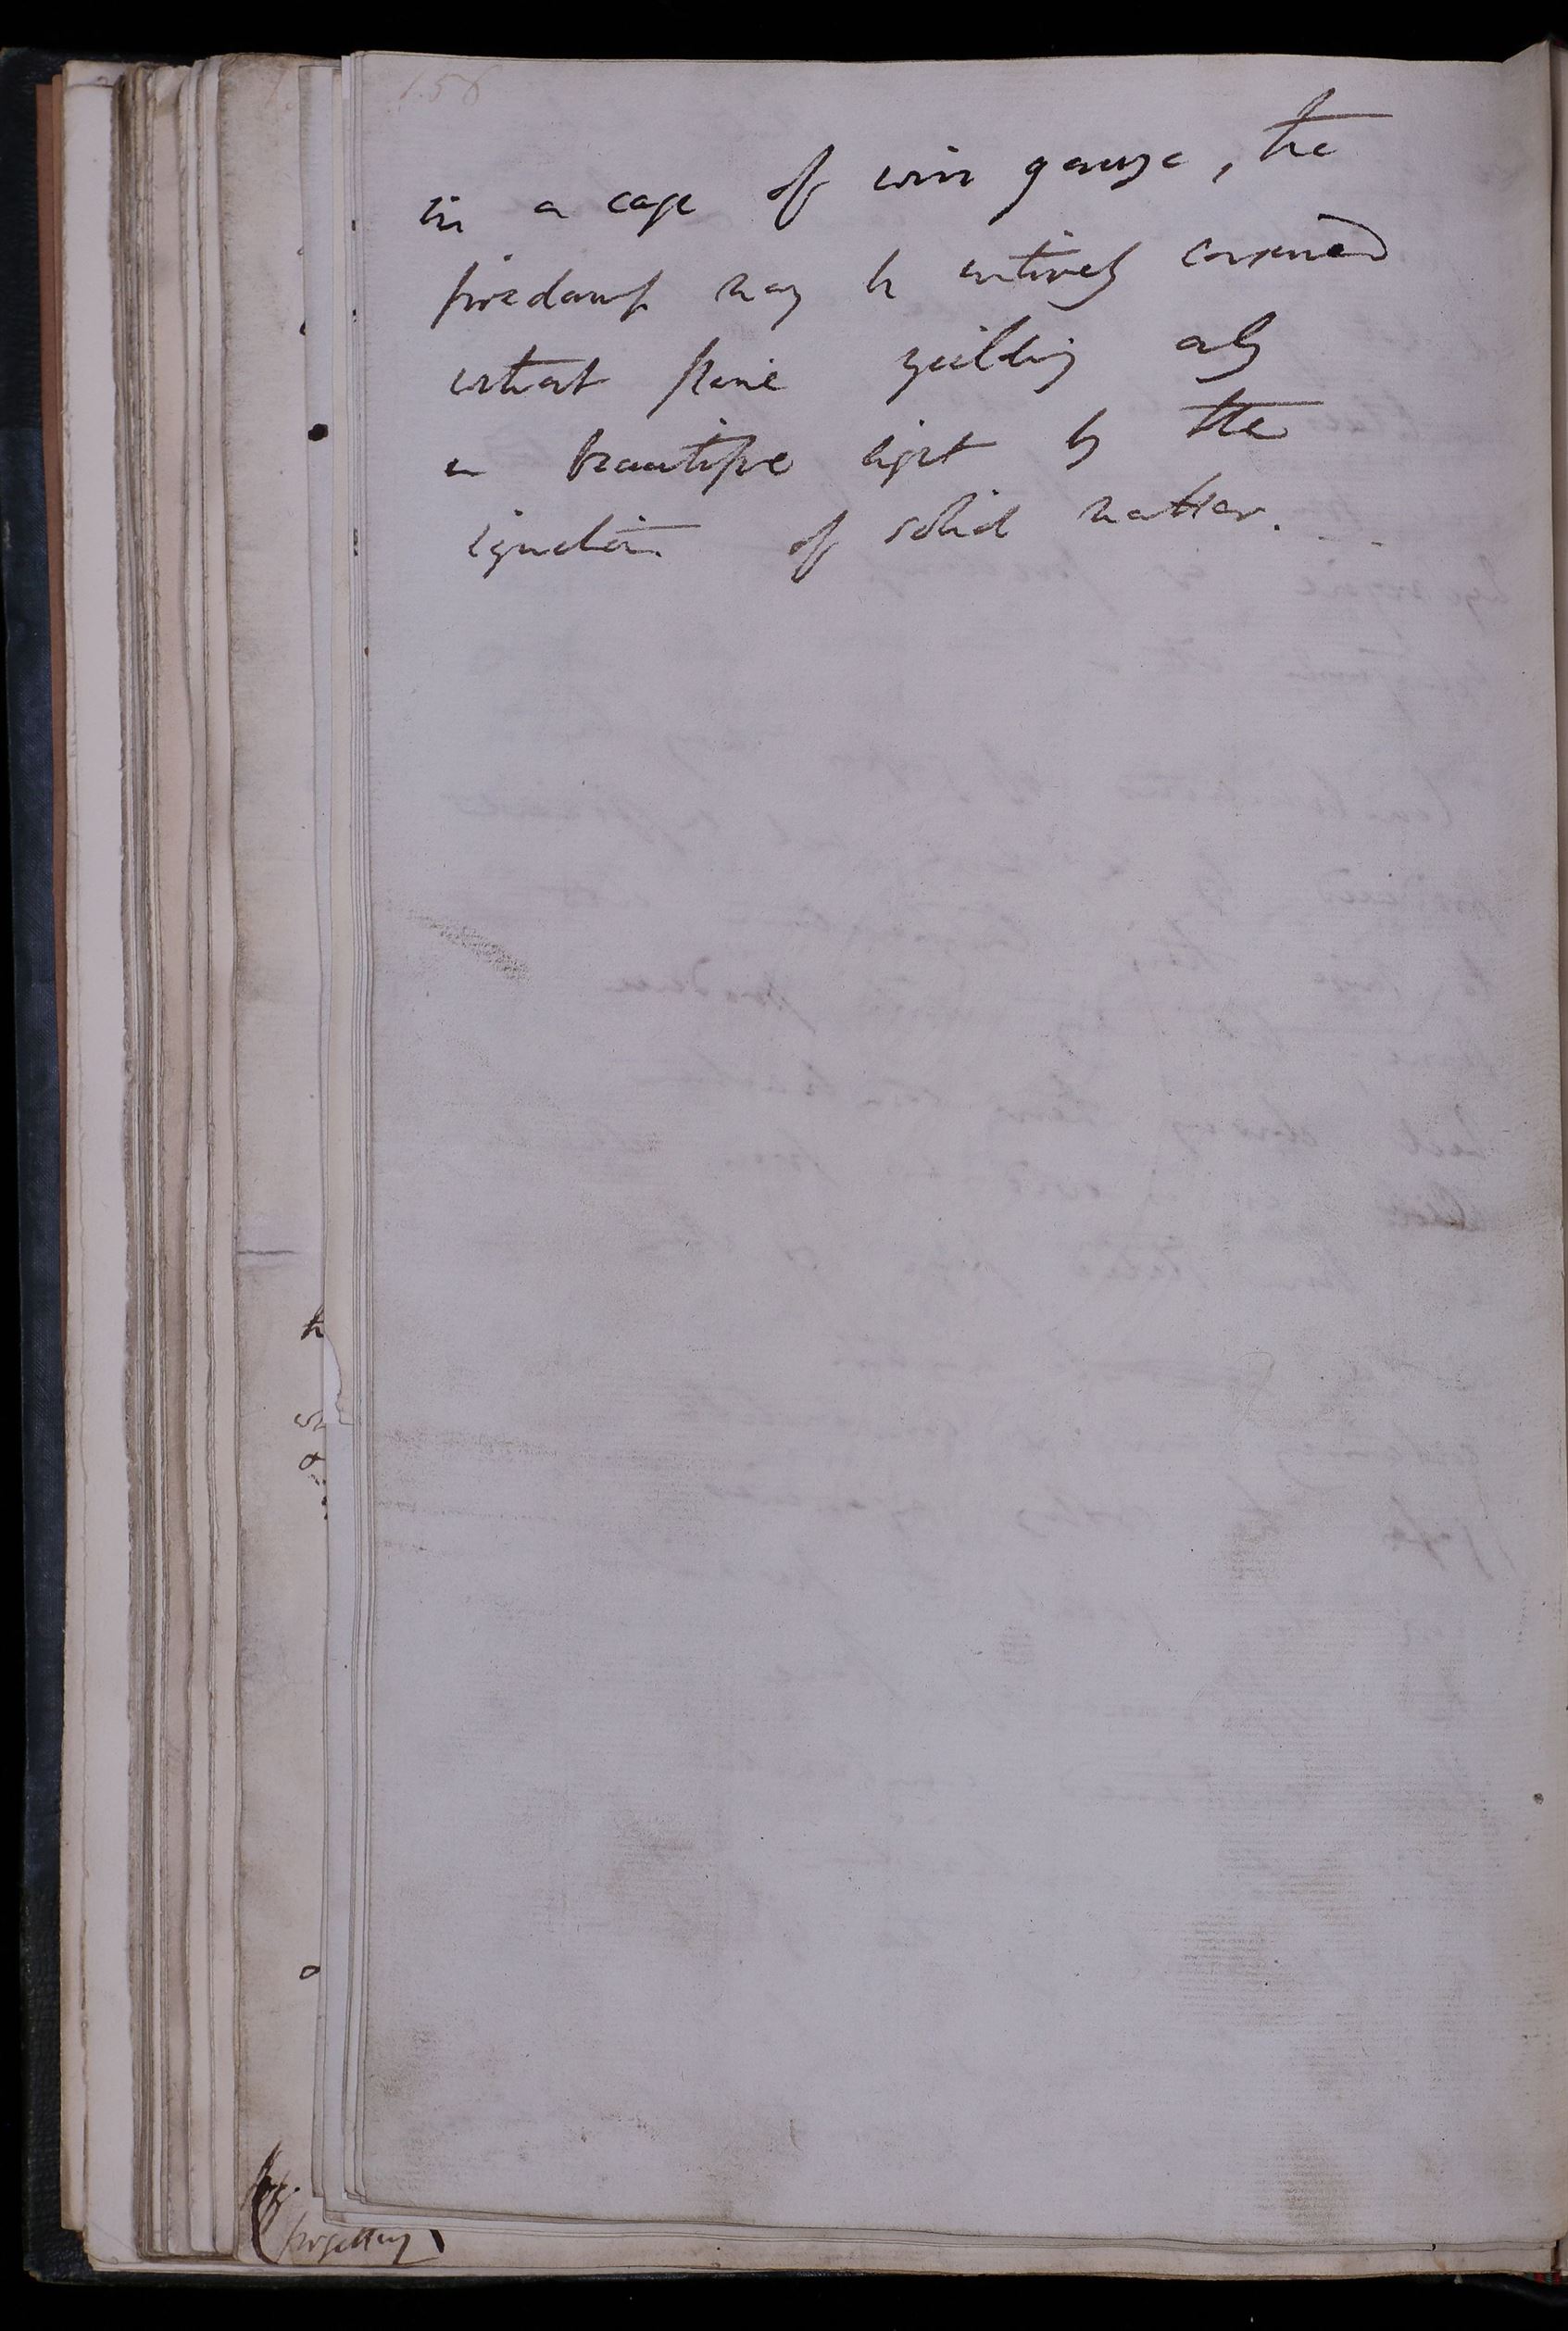 156
in a cage of wire gauze, the
firedamp may be entirely consumed
without flame yielding only
a beautiful light by the
ignition of solid matter.
forgetting